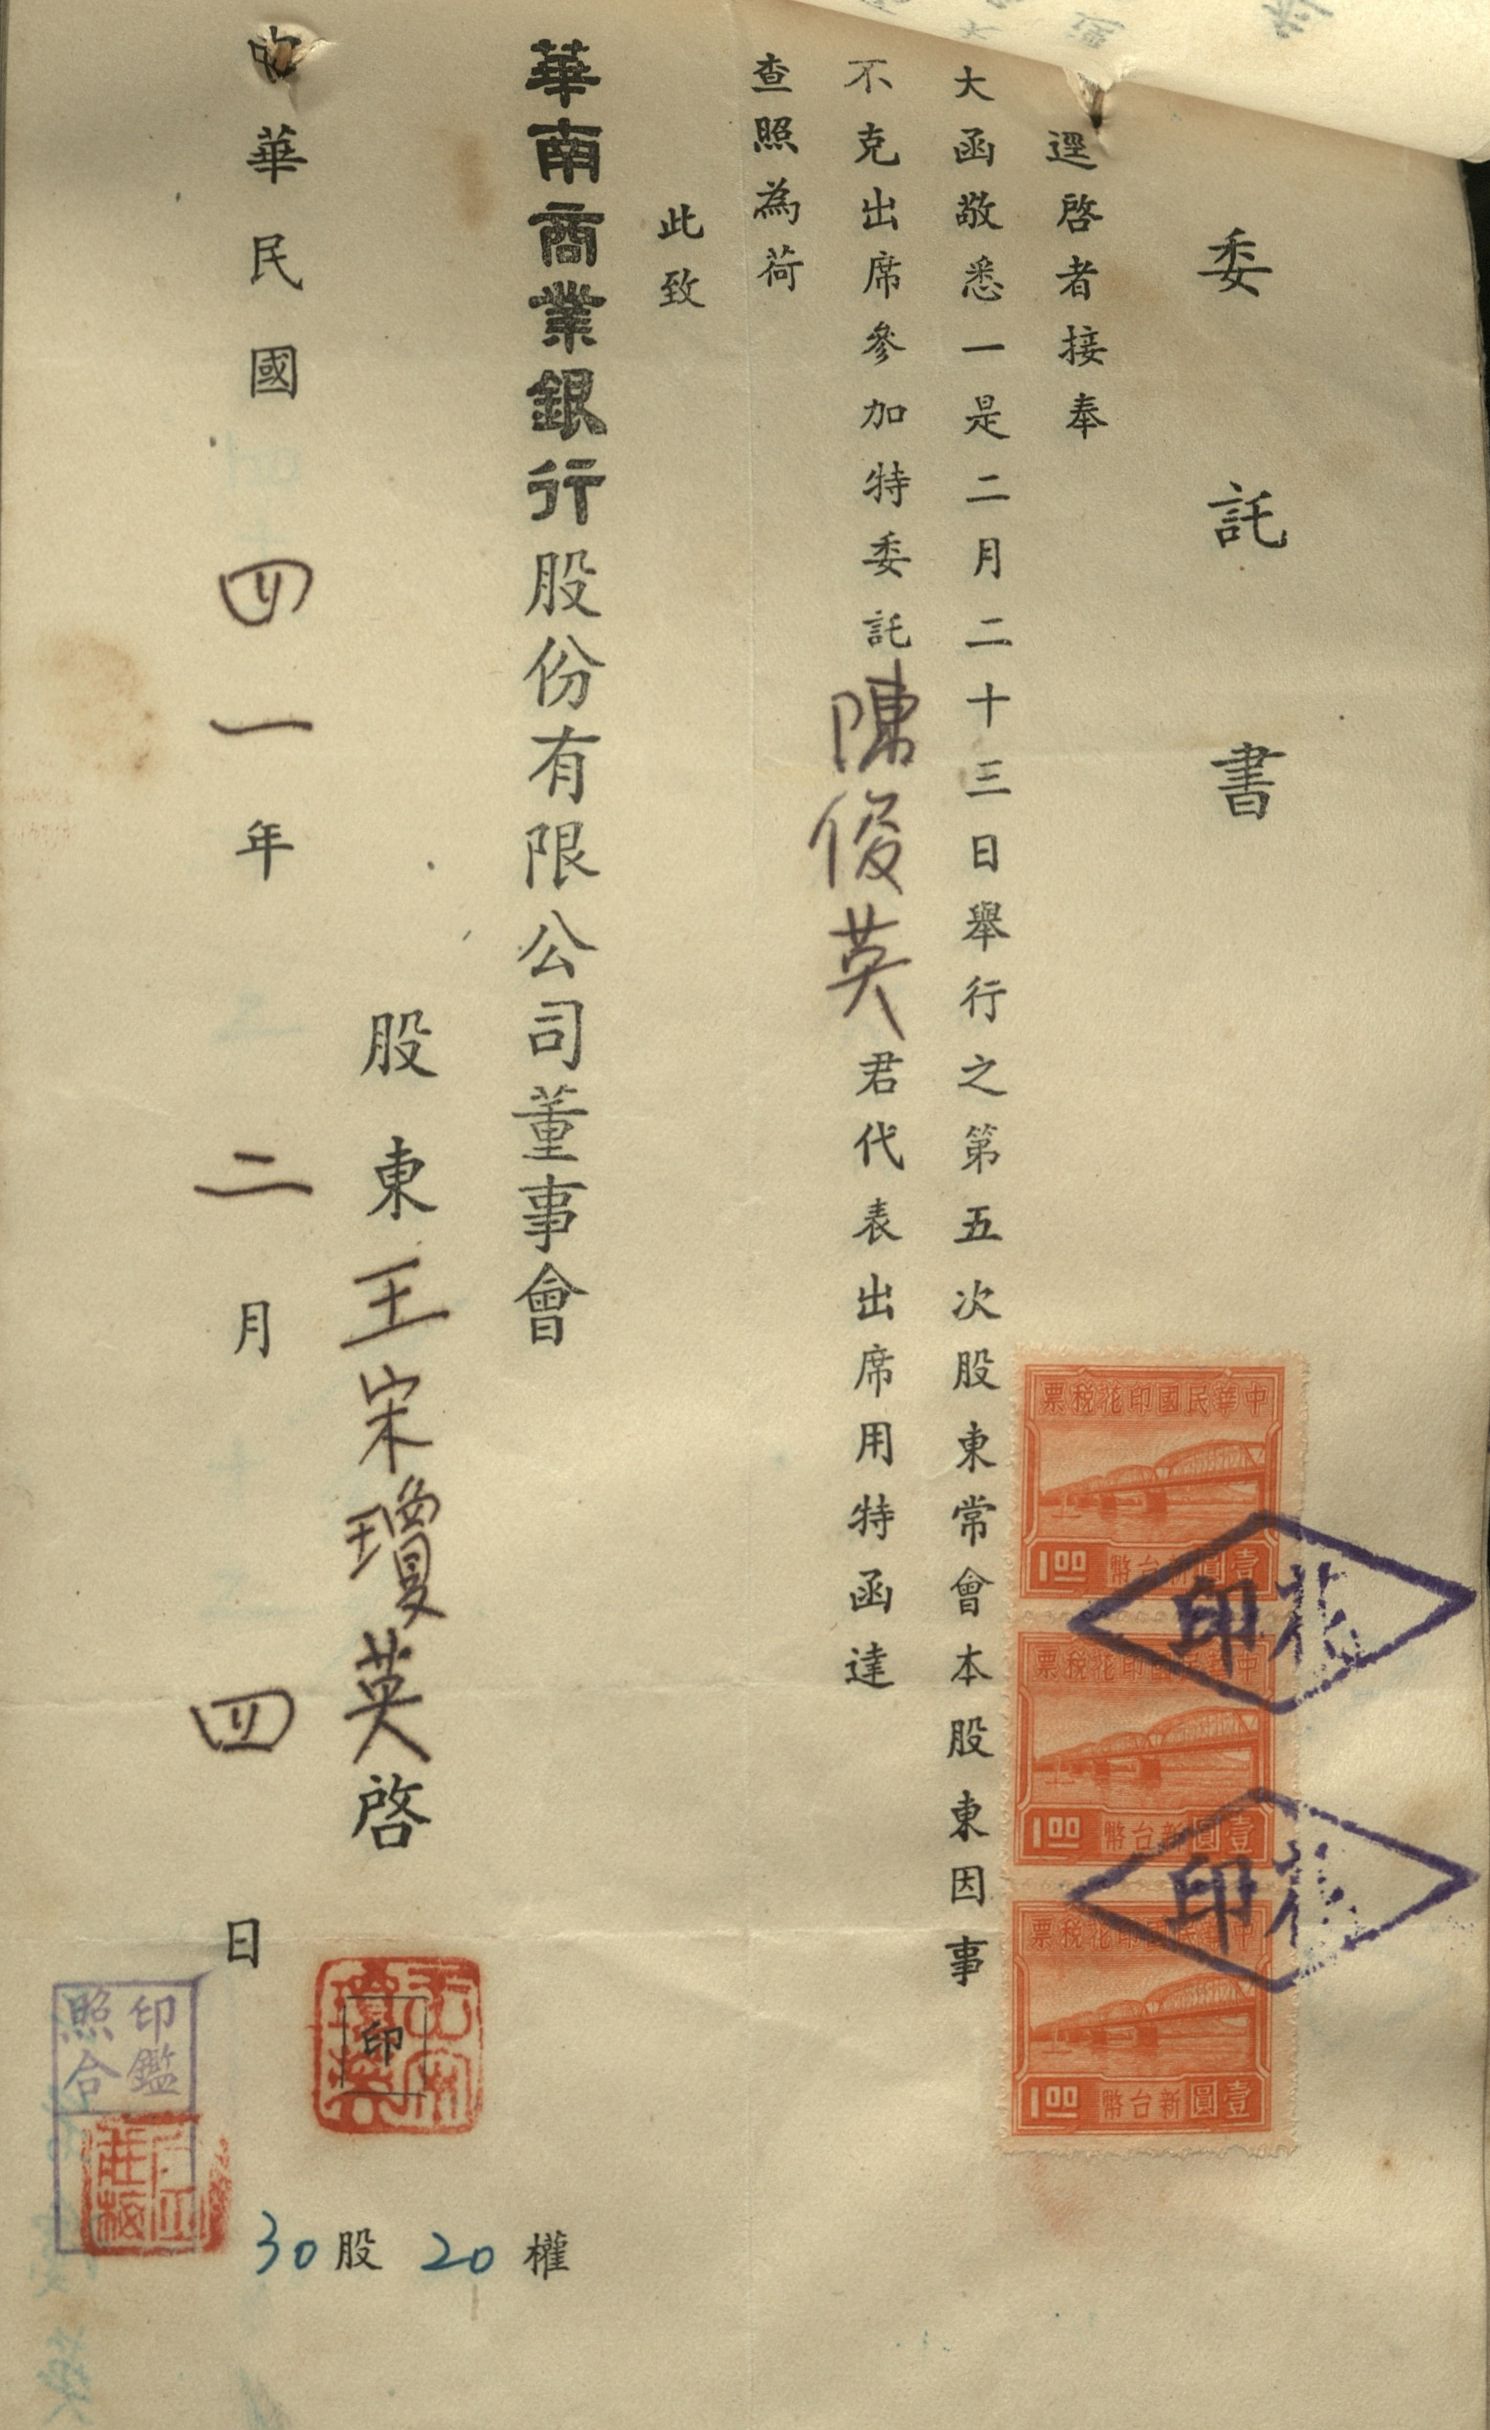 委託書
逕啓者接奉
大函敬悉一是二月二十三日舉行之第五次股東常會本股東因事
不克出席參加特委託陳俊英君代表出席用特函達
查照為荷
此致
華南商業銀行股份有限公司董事會
股東王宋瓊英啓
印
中華民國四一年二月四日
30股20權
印鑑
照合
中華民國印花稅票
1.00 新台幣壹圓
中華民國印花稅票
1.00 新台幣壹圓
中華民國印花稅票
1.00 新台幣壹圓
印花
印花